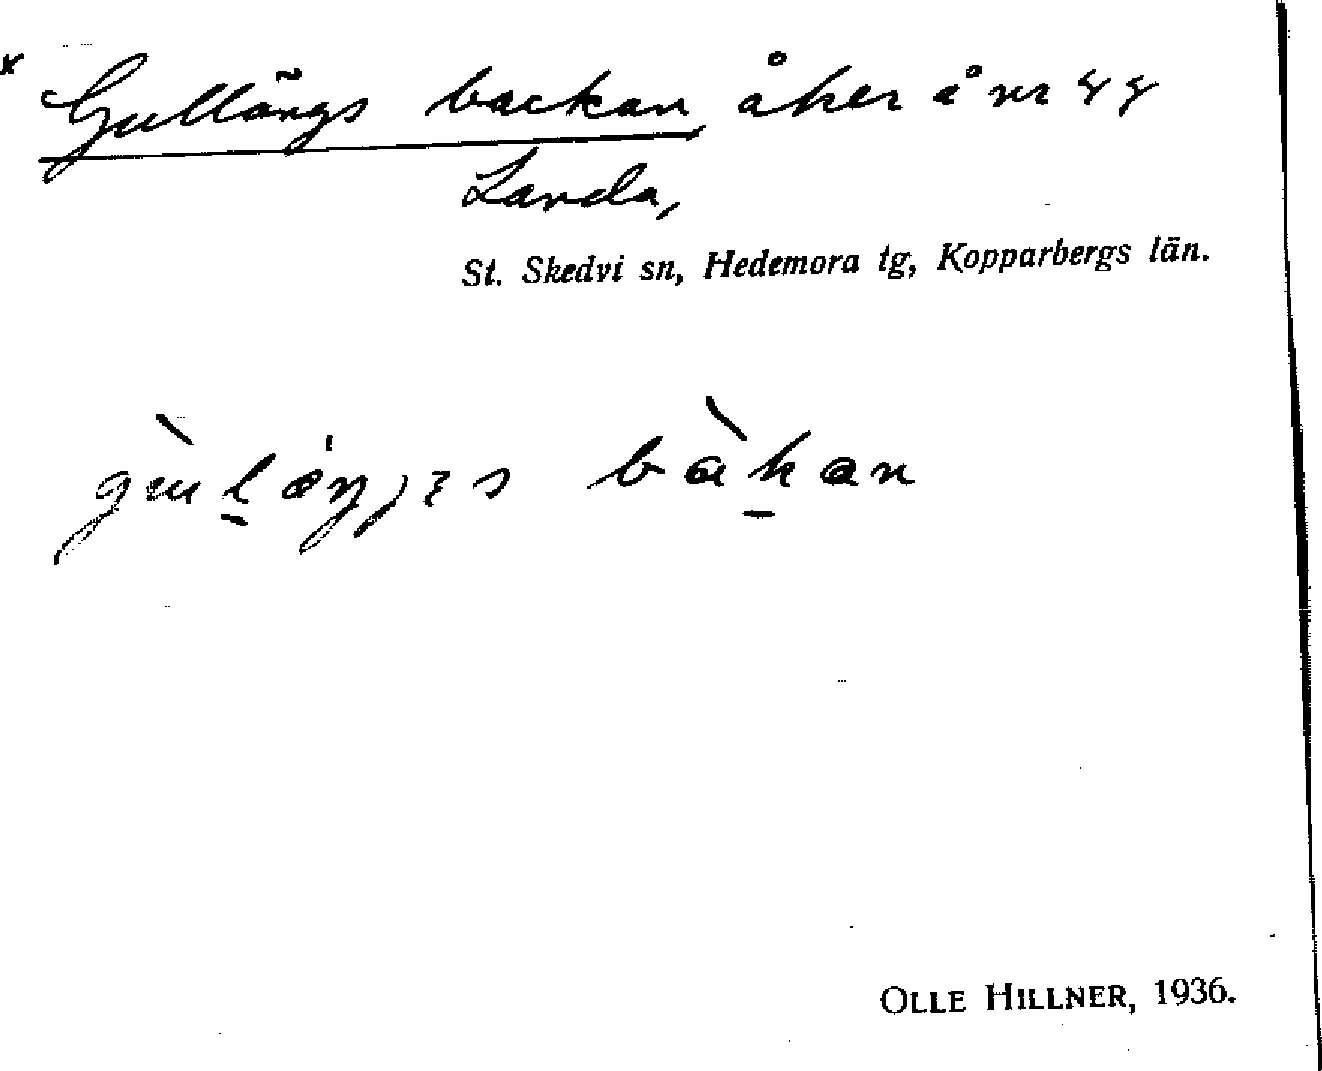 Gullängs backan, åker å nr
Landa,
St. Skedvi sn, Hedemora tg, Kopparbergs län.
bàkan
OLLE HILLNER, 1936.